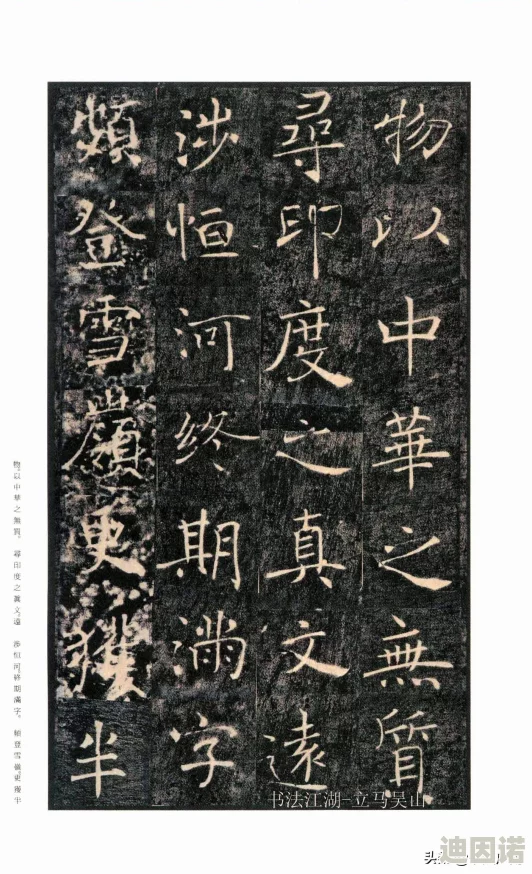 物以中華之無質
尋印度之真文遠
涉恒河終期滿字
頻登雪嶺更獲半
物。以中華之無質。 尋印度之真文。遠 涉恒河。終期滿字。 頻登雪嶺。更獲半
书法江湖-立马吴山
头条
迪因诺